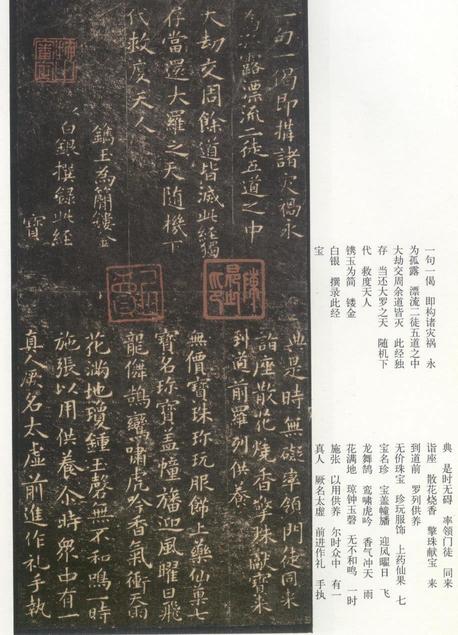 一句一偈即構諸灾禍永
為孤露漂流二徒五道之中
大劫交周餘道皆滅此经獨
存當還大羅之天隨機下
代救度天人
鐫玉為簡鏤金
白銀撰録此经
寳
典是時無礙率領門徒同来
詣座散花燒香擎珠獻寳来
到道前羅列供养
無價寶珠珎玩服餙上藥仙菓七
寳名珎寳盖幢旛迎風曜日飛
龍儛鵠鸞嘯虎吟香氣衝天雨
花滿地瓊鍾玉磬無不和鳴一時
施張以用供養尒時衆中有一
真人厥名太虚前進作礼手執
一句一偈 即构诸灾祸 永
为孤露 漂流二徒五道之中
大劫交周余道皆灭 此经独
存 当还大罗之天 随机下
代 救度天人
镌玉为简 镂金
白银 撰录此经
宝
典 是时无碍 率领门徒 同来
诣座 散花烧香 擎珠献宝 来
到道前 罗列供养
无价珠宝 珍玩服饰 上药仙果 七
宝名珍 宝盖幢旛 迎风曜日 飞
龙舞鹄 鸾啸虎吟 香气冲天 雨
花满地 琼钟玉磬 无不和鸣 一时
施张 以用供养 尔时众中 有一
真人 厥名太虚 前进作礼 手执